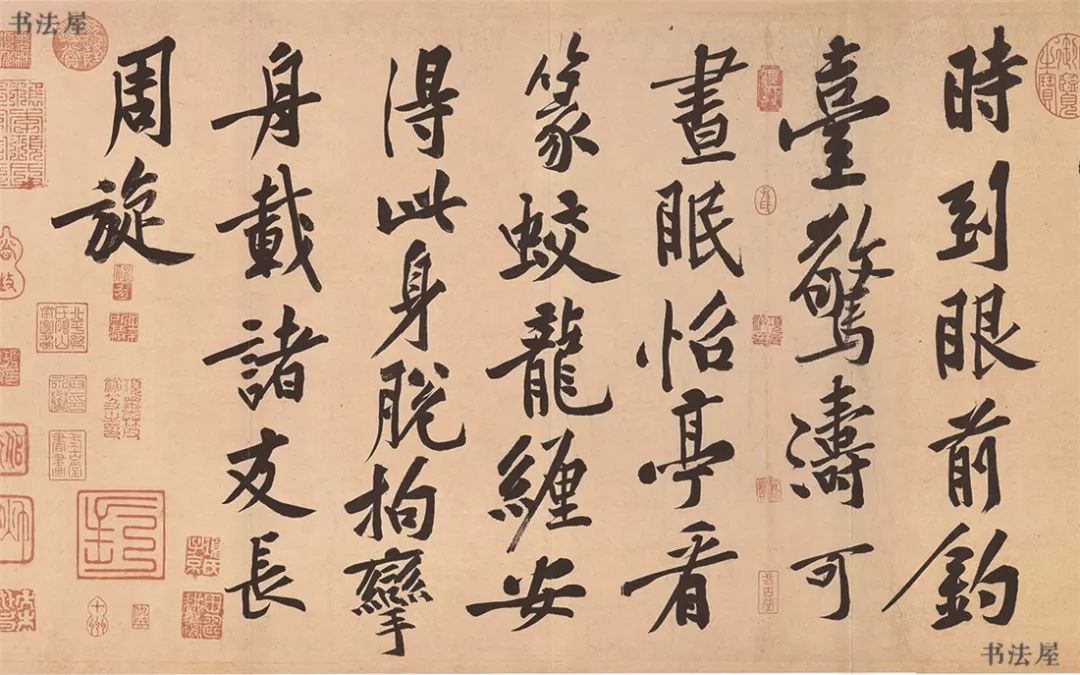 书法屋
時到眼前釣
臺驚濤可
晝眠怡亭看
篆蛟龍纏安
得此身脫拘攣
舟載諸友長
周旋
御覽之寶
十州
书法屋